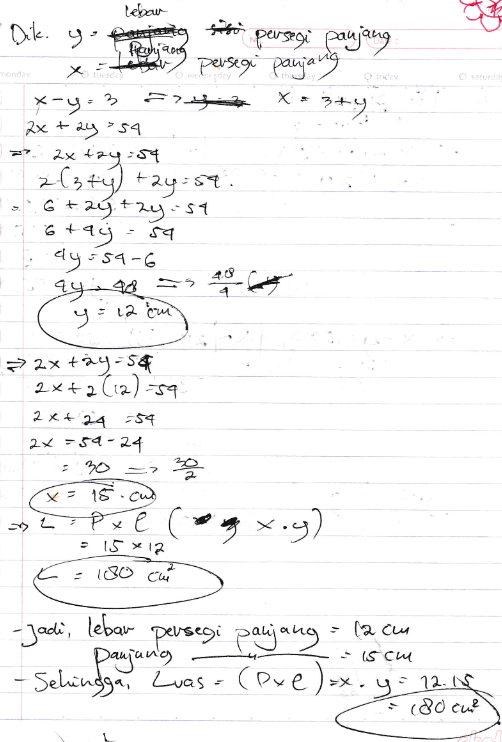 lebar
Dik. y = panjang sisi persegi panjang
Panjang
x = lebar persegi panjang
monday tuesday wednesday thursday friday saturday
x - y = 3 => y = 3 x = 3 + y
2x + 2y = 54
=> 2x + 2y = 54
2(3+y) + 2y = 54.
= 6 + 2y + 2y = 54
6 + 4y = 54
4y = 54 - 6
4y = 48 => 48/4
y = 12 cm
=> 2x + 2y = 54
2x + 2(12) = 54
2x + 24 = 54
2x = 54 - 24
= 30 => 30/2
x = 15 . cm
=> L = P x l ( x . y)
= 15 x 12
L = 180 cm²
- Jadi, lebar persegi panjang = 12 cm
panjang ——"—— = 15 cm
- Sehingga, Luas = (P x l) = x . y = 12.15
= 180 cm²